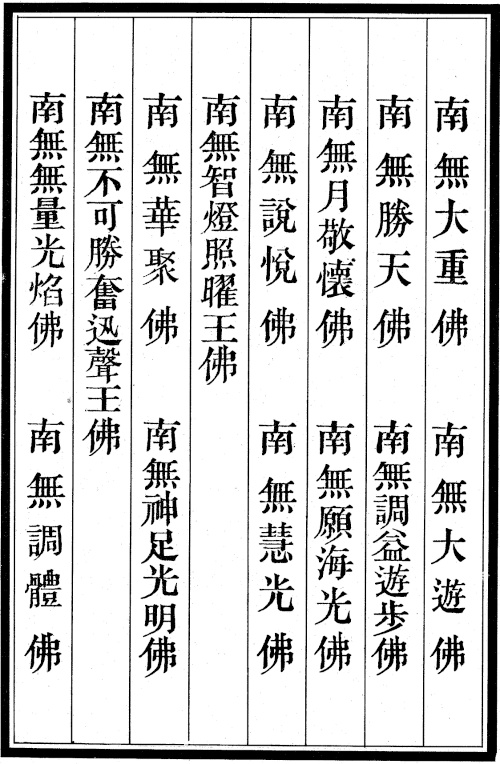 南無大重佛　南無大遊佛
南無勝天佛　南無調益遊步佛
南無月敬懷佛　南無願海光佛
南無說悅佛　南無慧光佛
南無智燈照曜王佛
南無華聚佛　南無神足光明佛
南無不可勝奮迅聲王佛
南無無量光焰佛　南無調體佛